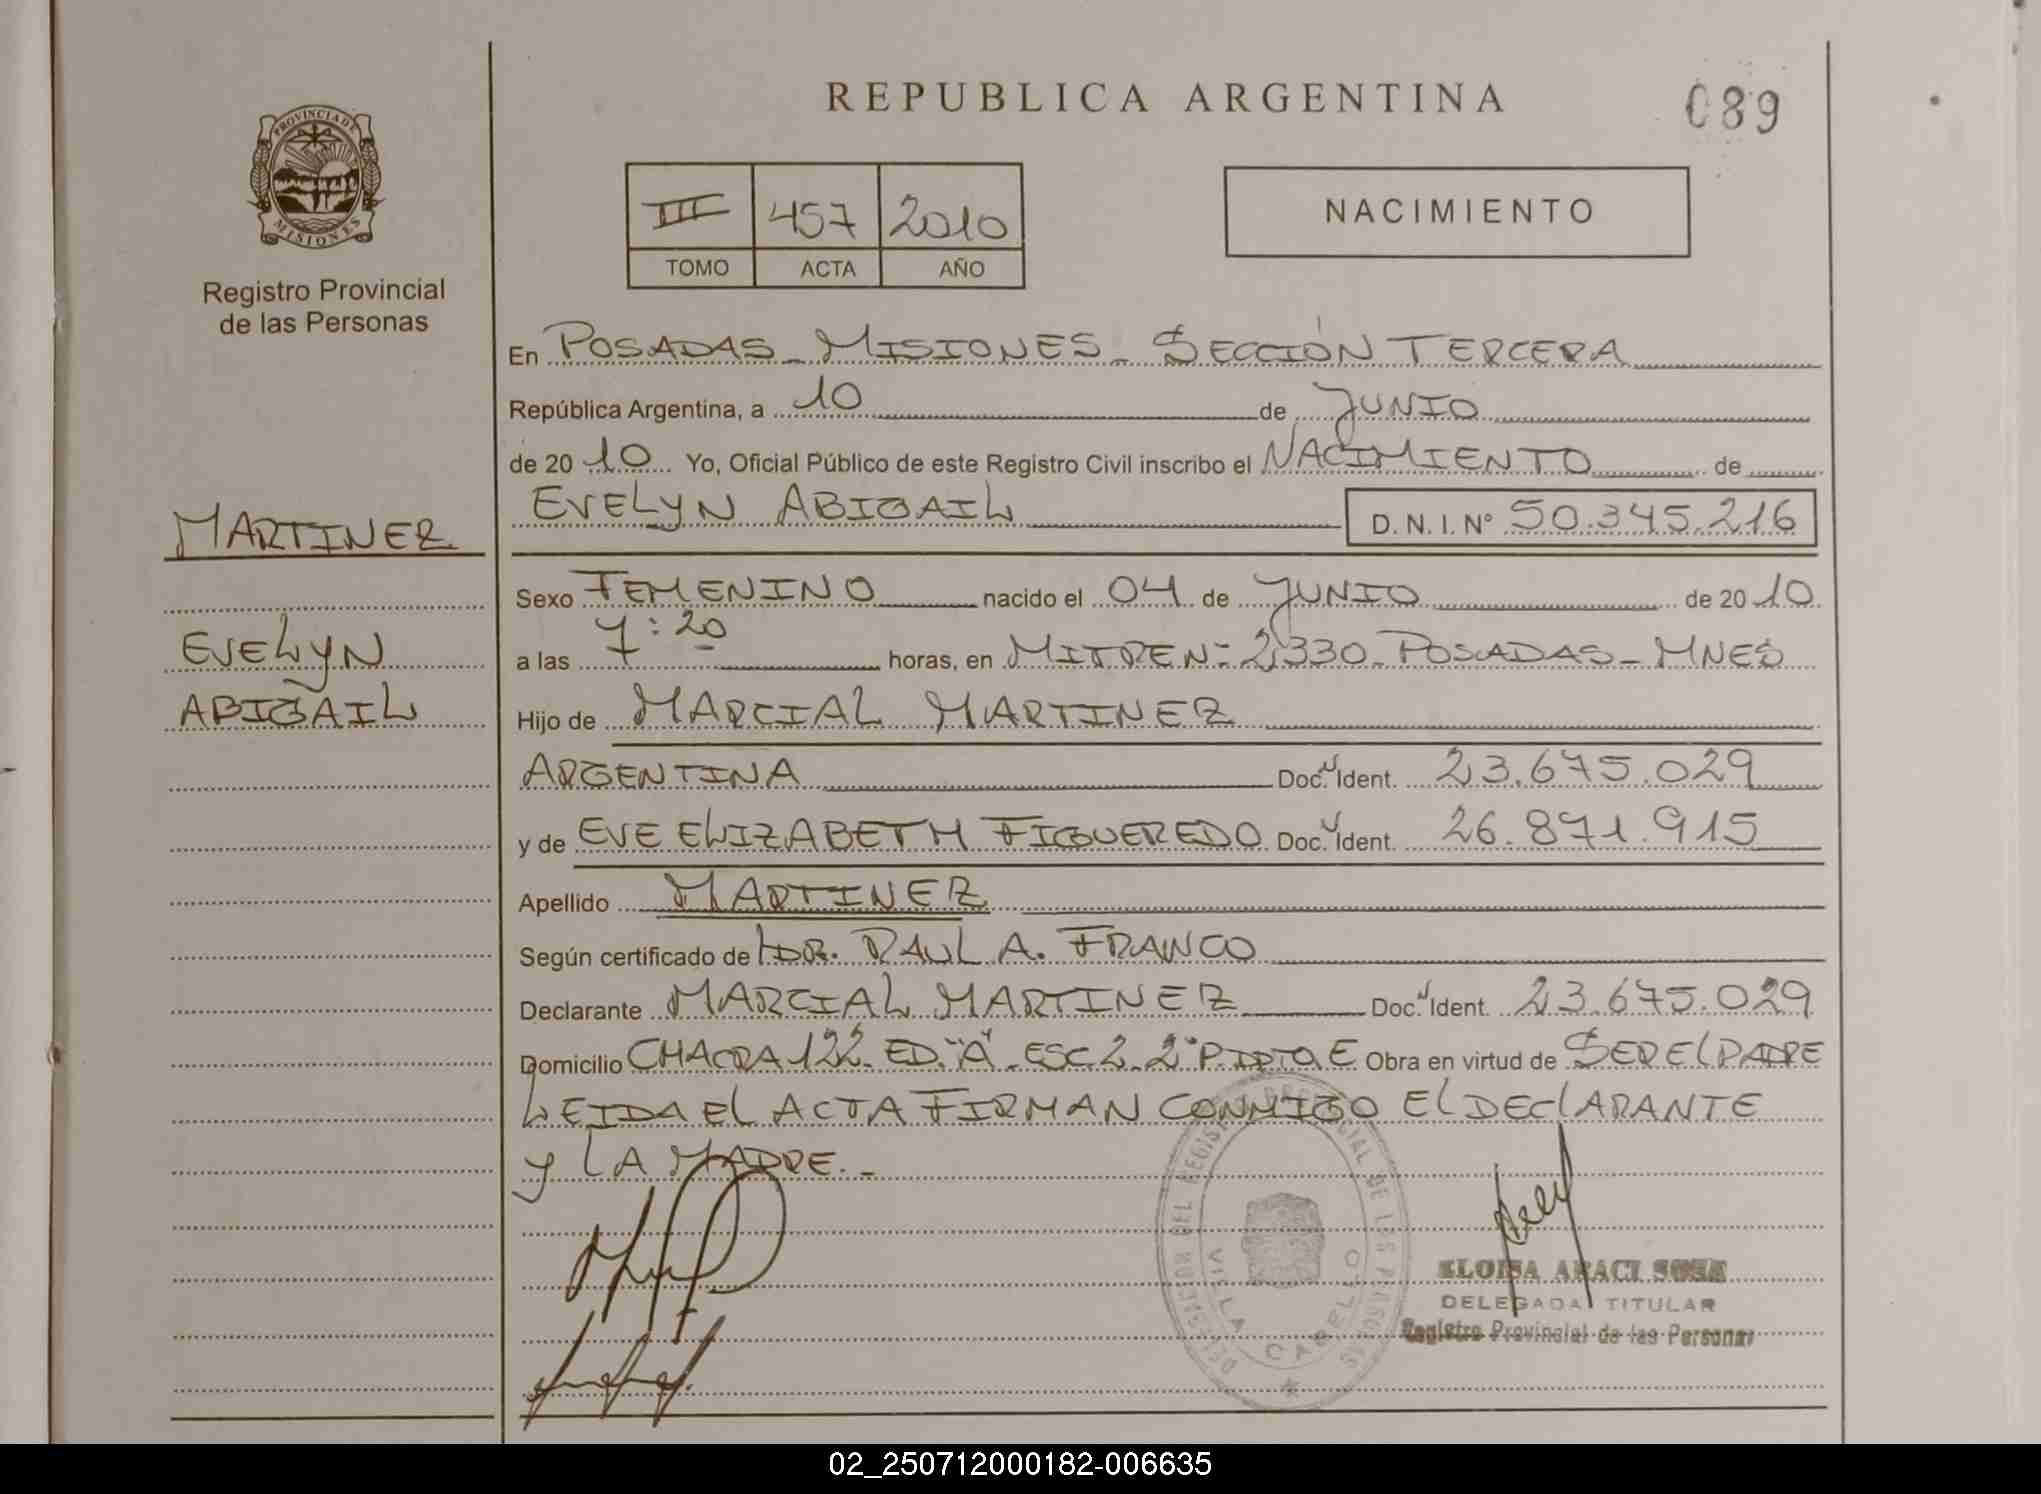 REPUBLICA ARGENTINA
089
PROVINCIA DE MISIONES
Registro Provincial
de las Personas
III 457 2010
TOMO ACTA AÑO
NACIMIENTO
En POSADAS - MISIONES - SECCIÓN TERCERA
República Argentina, a 10 de JUNIO
de 20 10 Yo, Oficial Público de este Registro Civil inscribo el NACIMIENTO de
EVELYN ABIGAIL D. N. I. N° 50.345.216
MARTINEZ
EVELYN
ABIGAIL
Sexo FEMENINO nacido el 04 de JUNIO de 20 10
a las 7:20 horas, en MITRE N: 2330 POSADAS - MNES
Hijo de MARCIAL MARTINEZ
ARGENTINA Doc. Ident. 23.675.029
y de EVE ELIZABETH FIGUEREDO Doc. Ident. 26.871.915
Apellido MARTINEZ
Según certificado de DR. RAUL A. FRANCO
Declarante MARCIAL MARTINEZ Doc. Ident. 23.675.029
Domicilio CHACRA 122 - ED. "A" - ESC 2 2° P. DPTO E Obra en virtud de SER EL PADRE
LEIDA EL ACTA FIRMAN CONMIGO EL DECLARANTE
Y LA MADRE. -
DELEGACION DEL REGISTRO PROVINCIAL DE LAS PERSONAS
VILLA CABELLO
ELOISA ARACI SOSA
DELEGADA TITULAR
Registro Provincial de las Personas
02_250712000182-006635